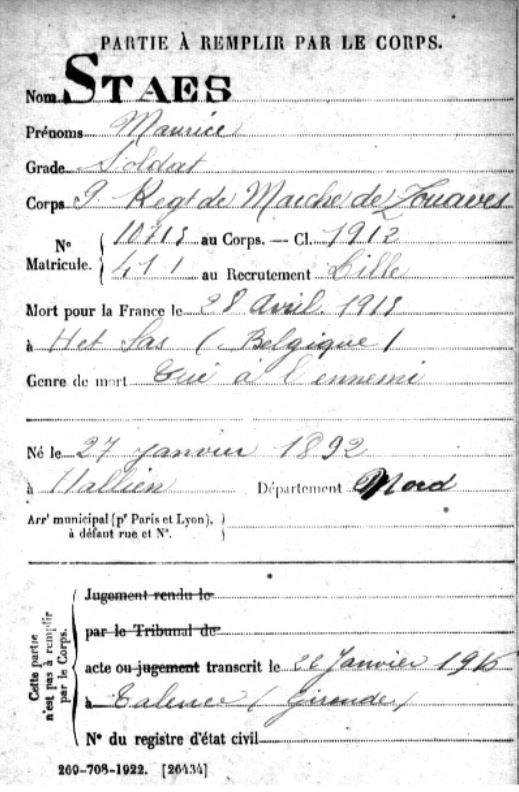 PARTIE À REMPLIR PAR LE CORPS.
Nom STAES
Prénoms Maurice
Grade Soldat
Corps 9 Regt de Marche de Zouaves
N° Matricule. 10713 au Corps. — Cl. 1912
411 au Recrutement Lille
Mort pour la France le 28 Avril 1915
à Het Sas (Belgique)
Genre de mort Tué à l'ennemi
Né le 27 Janvier 1892
à Halluin Département Nord
Arrt municipal (pr Paris et Lyon),
à défaut rue et N°.
Cette partie n'est pas à remplir par le Corps.
Jugement rendu le
par le Tribunal de
acte ou jugement transcrit le 22 Janvier 1916
à Talence (Gironde)
N° du registre d'état civil
269-708-1922. [26434]